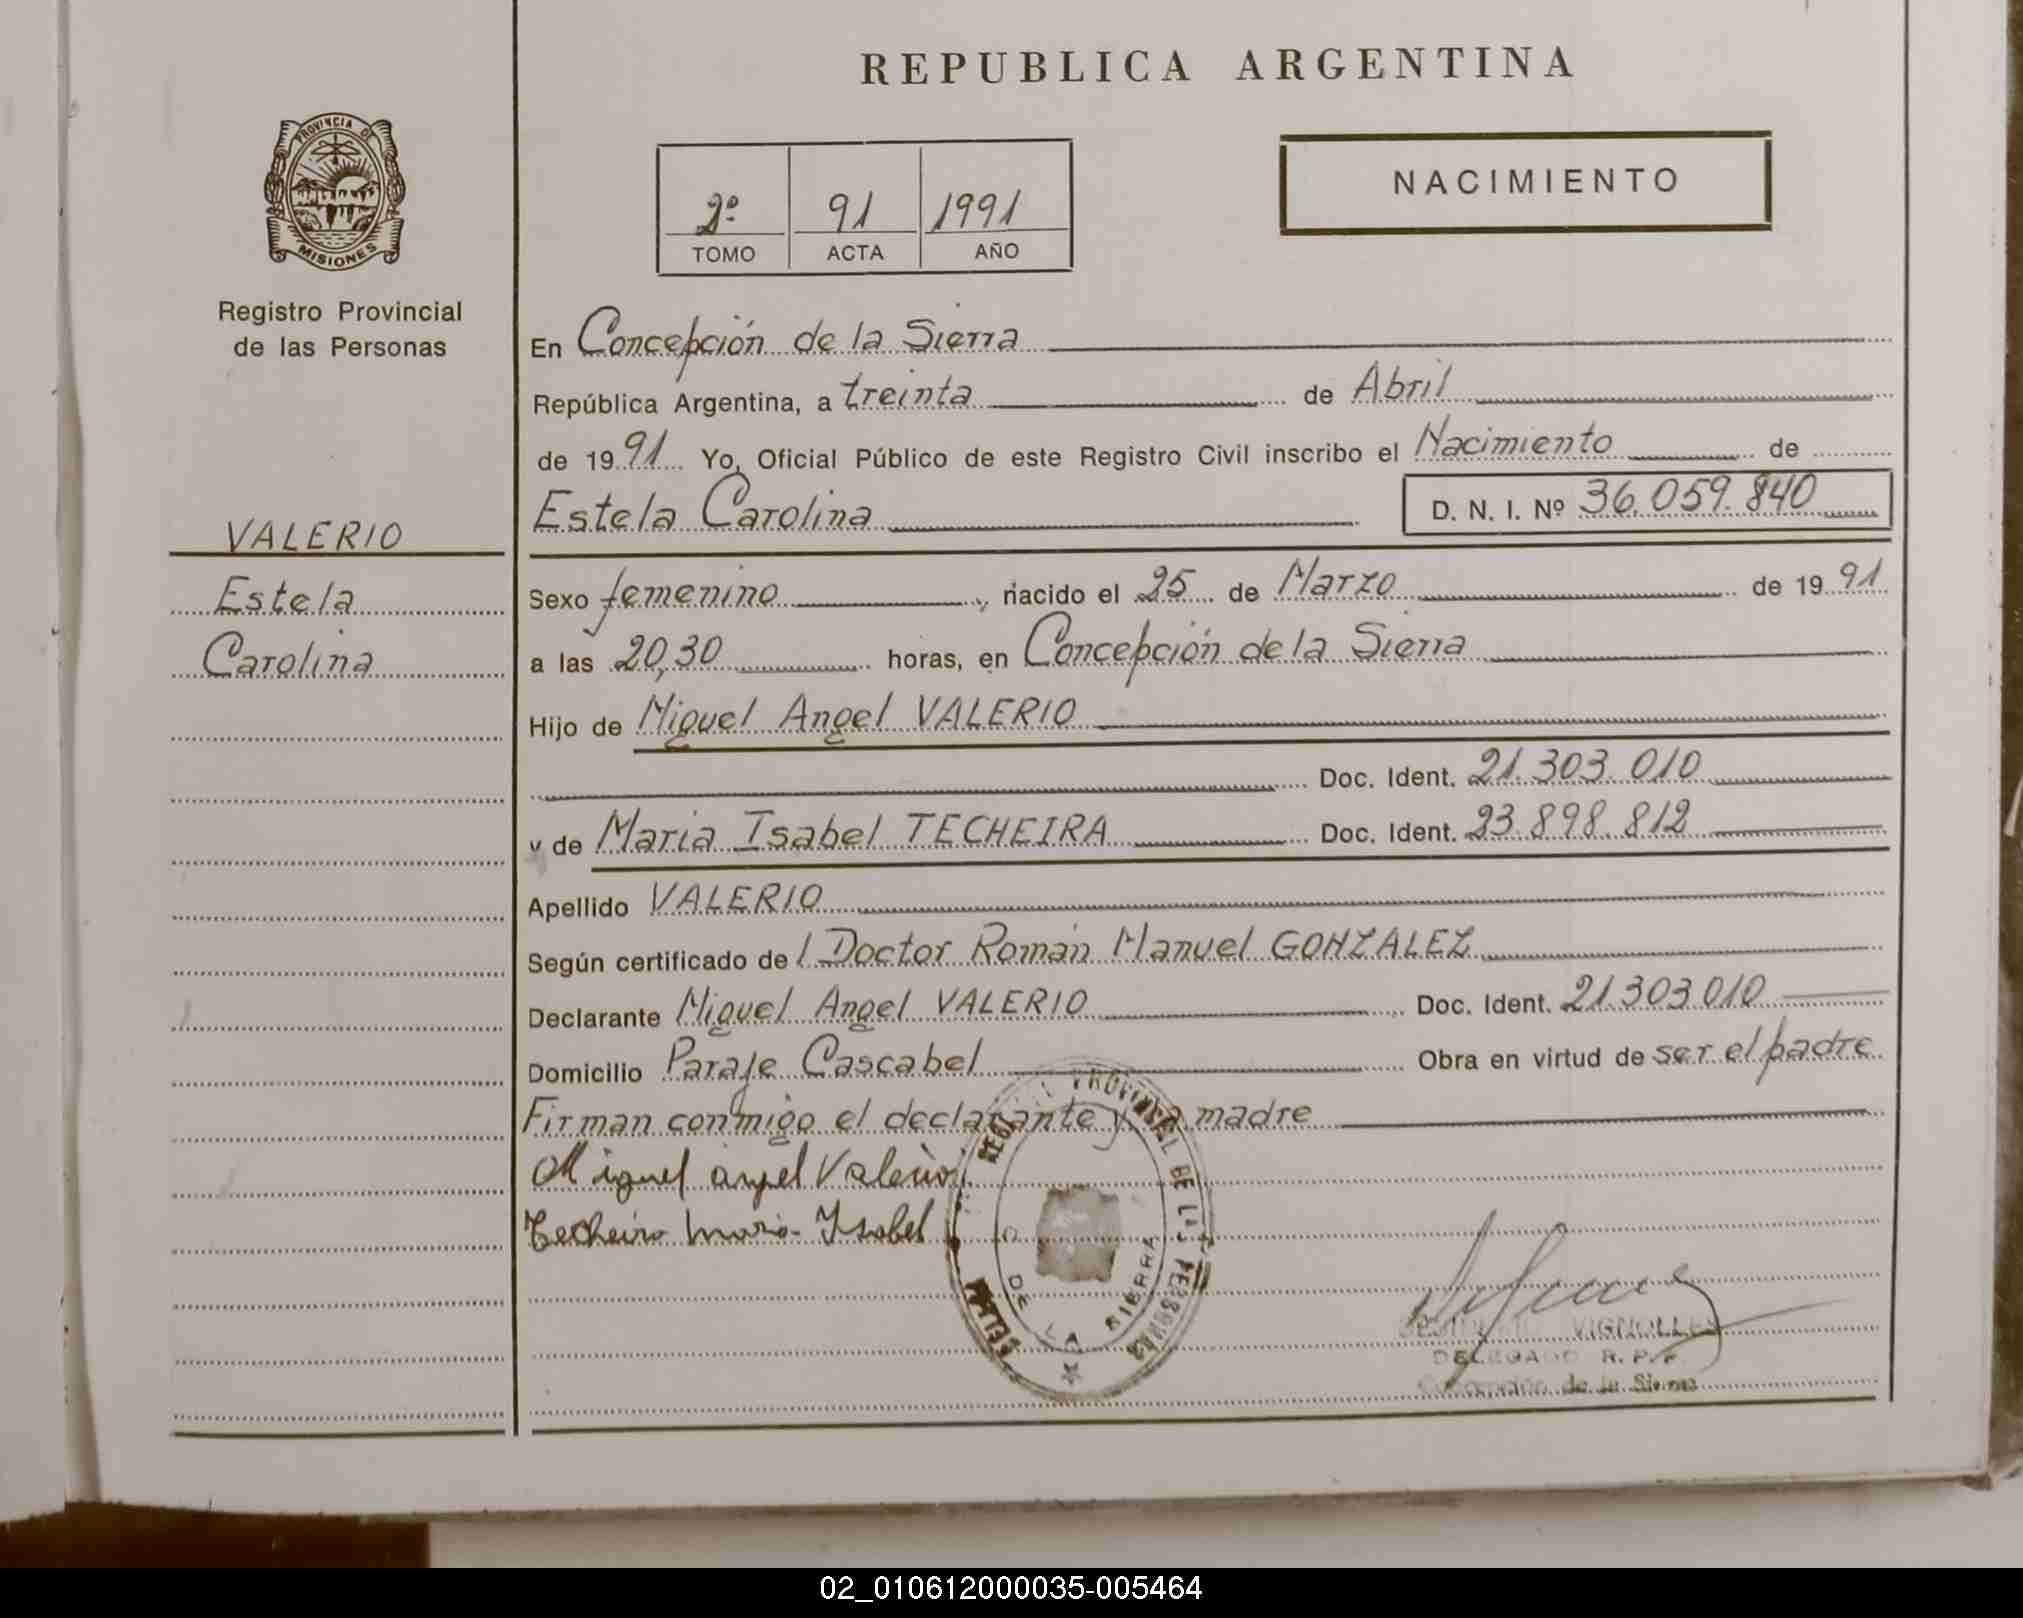 REPUBLICA ARGENTINA
PROVINCIA DE
MISIONES
Registro Provincial
de las Personas
VALERIO
Estela
Carolina
NACIMIENTO
2º 91 1991
TOMO ACTA AÑO
En Concepción de la Sierra
República Argentina, a treinta de Abril
de 1991 Yo, Oficial Público de este Registro Civil inscribo el Nacimiento de
Estela Carolina D. N. I. Nº 36.059.840
Sexo femenino, nacido el 25 de Marzo de 1991
a las 20,30 horas, en Concepción de la Sierra
Hijo de Miguel Angel VALERIO
Doc. Ident. 21.303.010
y de Maria Isabel TECHEIRA Doc. Ident. 23.898.812
Apellido VALERIO
Según certificado del Doctor Román Manuel GONZALEZ
Declarante Miguel Angel VALERIO Doc. Ident. 21.303.010
Domicilio Paraje Cascabel Obra en virtud de ser el padre
Firman conmigo el declarante y la madre
Miguel angel Valerio
Techeira Maria Isabel
PROVINCIAL DE LAS PERSONAS
DE LA SIERRA
VIGNOLLES
DELEGADO R. P. P.
Concepción de la Sierra
02_010612000035-005464